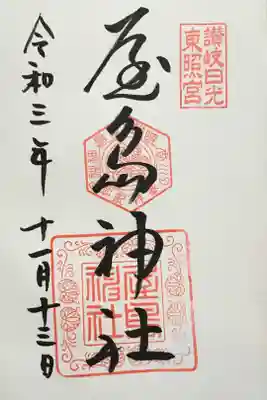 讃岐日光
東照宮
屋島神社
令和三年 十一月十三日